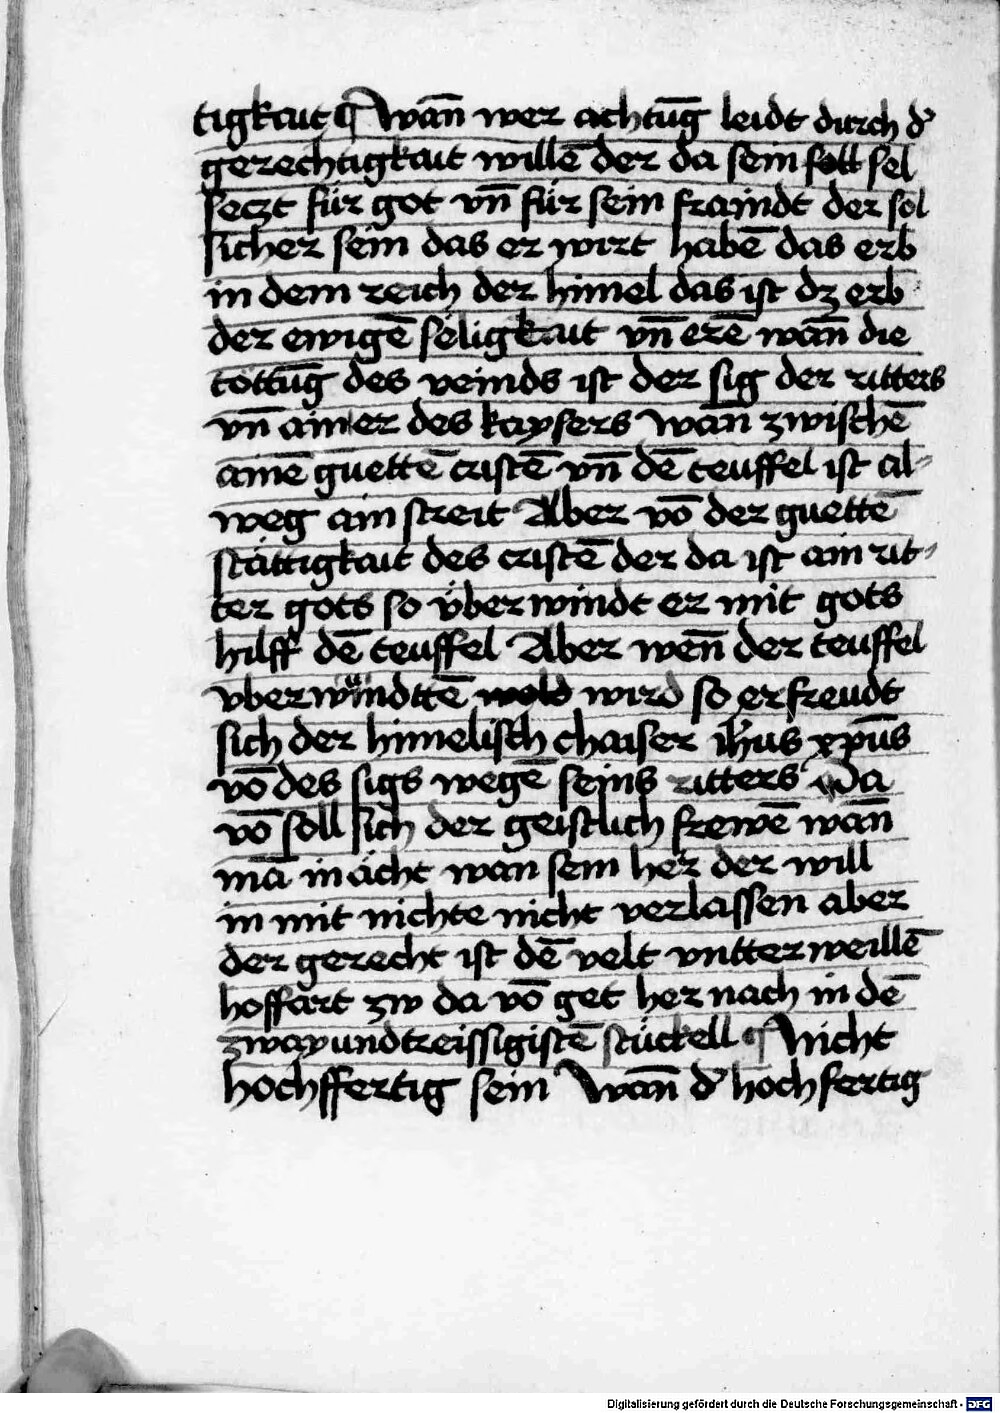 tigkait ¶ Wan̄ wer achtūg leidt durch d'
gerechtigkait willē der da sein soll sel
seczt für got vn̄ für sein fraindt der sol
sicher sein das er wirt habē das erb
in dem reich der himel das ist dz erb
der ewigē seligkait vn̄ erē wan̄ die
töttūg des veinds ist der sig der ritters
vn̄ ainer des kaysers wan̄ zwischē
ainē guettē cristē vn̄ dē teuffel ist al-
weg ain streit Aber vō der guettē
stättigkait des cristē der da ist ain rit-
ter gots so überwindt er mit gots
hilff dē teuffel Aber wen̄ der teuffel
vberwundttē wold wird so erfreudt
sich der himelisch chaiser ih̄us xp̄us
vō des sigs wegē seins ritters Da
vō soll sich der geistlich frewē wan̄
mā in ächt wan sein her der will
in mit nichte nicht verlassen aber
der gerecht ist dē velt vntterweillē
hoffart zw da vō get her nach in dē
zwayundtreissigistē stückell ¶ Nicht
hochffertig sein Wan̄ d' hochfertig
Digitalisierung gefördert durch die Deutsche Forschungsgemeinschaft - DFG